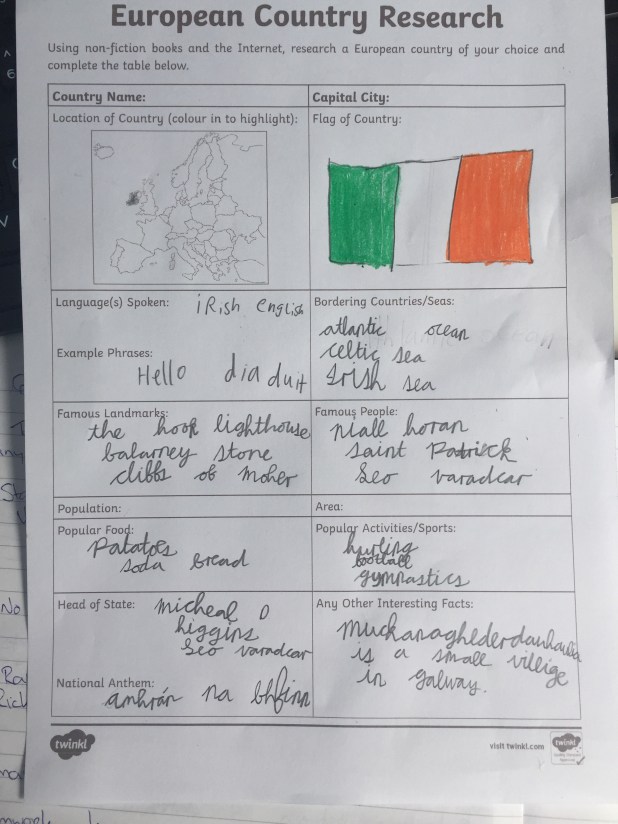 European Country Research
Using non-fiction books and the Internet, research a European country of your choice and
complete the table below.
Country Name:
Capital City:
Location of Country (colour in to highlight):
Flag of Country:
Language(s) Spoken: iRish English
Example Phrases:
Hello dia duit
Bordering Countries/Seas:
atlantic ocean
celtic sea
Irish sea
Famous Landmarks:
the hook lighthouse
balarney stone
cliffs of moher
Famous People:
niall horan
saint Patrick
leo varadcar
Population:
Area:
Popular Food:
Patatoes
soda bread
Popular Activities/Sports:
hurling
football
gymnastics
Head of State: micheal D
higgins
leo varadcar
National Anthem:
amhrán na bhfinn
Any Other Interesting Facts:
is a small villige
in galway.
twinkl
visit twinkl.com
twinkl